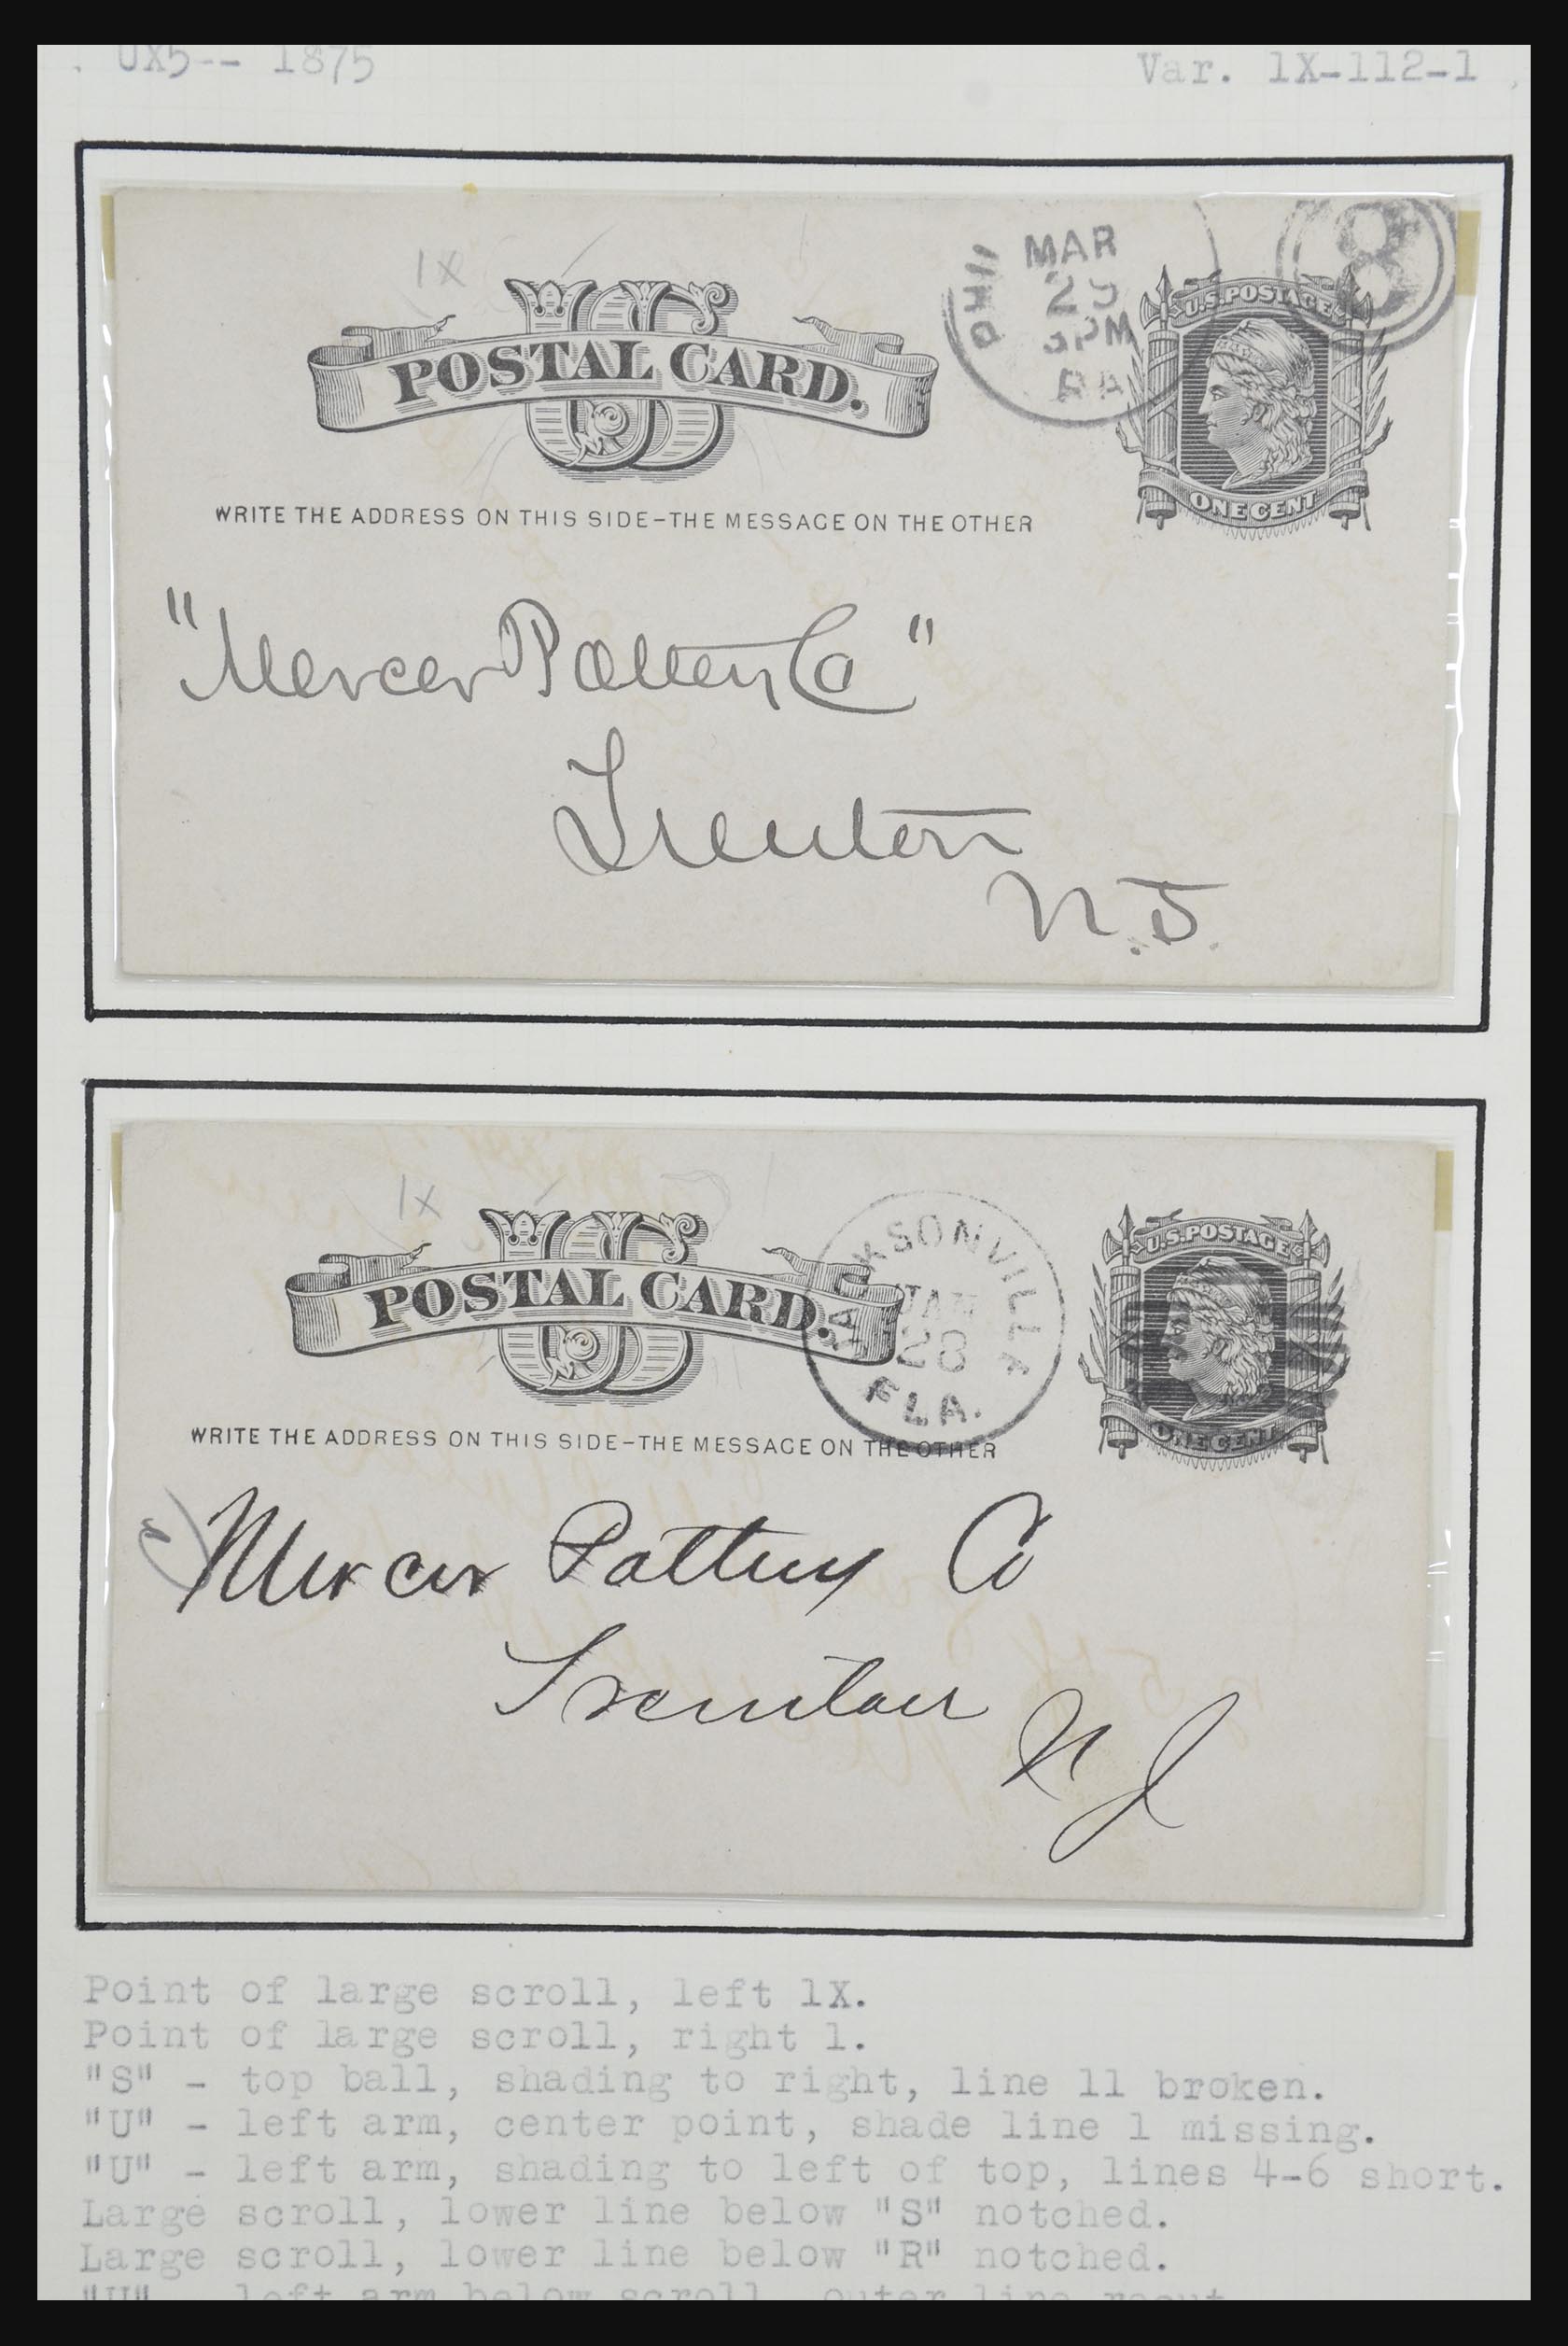 UX5-- 1875
Var. 1X-112-1
1X
MAR
PHIL
5PM
PA
8
U.S. POSTAGE
US
POSTAL CARD.
ONE CENT
WRITE THE ADDRESS ON THIS SIDE-THE MESSAGE ON THE OTHER
"Mercer Pottery Co"
Trenton
N.J.
1X
JACKSONVILLE
JAN
28
FLA.
U.S. POSTAGE
US
POSTAL CARD.
ONE CENT
WRITE THE ADDRESS ON THIS SIDE-THE MESSAGE ON THE OTHER
Mercer Pottery Co
Trenton
N J
Point of large scroll, left 1X.
Point of large scroll, right 1.
"S" - top ball, shading to right, line 11 broken.
"U" - left arm, center point, shade line 1 missing.
"U" - left arm, shading to left of top, lines 4-6 short.
Large scroll, lower line below "S" notched.
Large scroll, lower line below "R" notched.
"U" left arm below scroll, outer line recut